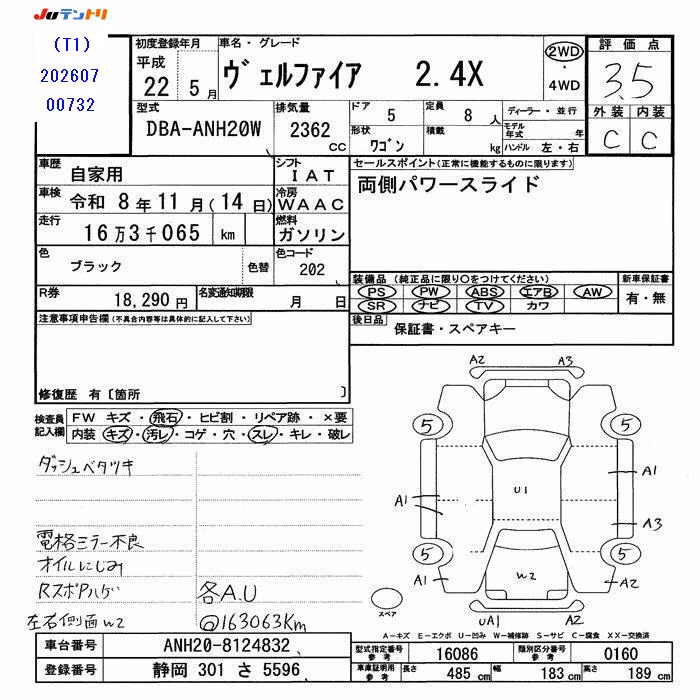 Juテントリ
(T1)
202607
00732
初度登録年月
平成
22 年 5 月
車名・グレード
ヴェルファイア 2.4X
2WD
・
4WD
評価点
3.5
外装 内装
C C
型式
DBA-ANH20W
排気量
2362 CC
ドア 5
定員 8 人
形状 ワゴン
積載 kg
ディーラー・並行
モデル年式 年
ハンドル 左・右
車歴 自家用
シフト IAT
セールスポイント(正常に機能するものに限ります)
両側パワースライド
車検 令和 8年 11月(14日)
冷房 WAAC
走行 16万3千065 km
燃料 ガソリン
色 ブラック 色替
色コード 202
装備品(純正品に限り○をつけてください)
PS PW ABS エアB AW
SR ナビ TV カワ
新車保証書
有・無
R券 18,290円
名変通知期限 月 日
後日品 保証書・スペアキー
注意事項申告欄(不具合内容等は具体的に記入して下さい)
修復歴 有〔箇所 〕
検査員記入欄
FW キズ・飛石・ヒビ割・リペア跡・×要
内装 キズ・汚レ・コゲ・穴・スレ・キレ・破レ
ダッシュベタツキ
電格ミラー不良
オイルにじみ
Rスポアハゲ
左右側面W2
各A.U
@163063Km
A2 A3
5 5
A1
U1
A1
A3
5 5
A1 W2 A2
スペア
UA1 A2
A-キズ E-エクボ U-凹み W-補修跡 S-サビ C-腐食 XX-交換済
車台番号 ANH20-8124832
型式指定番号 参考 16086
類別区分番号 参考 0160
登録番号 静岡 301 さ 5596
車庫証明用 参考 長さ 485 cm 幅 183 cm 高さ 189 cm